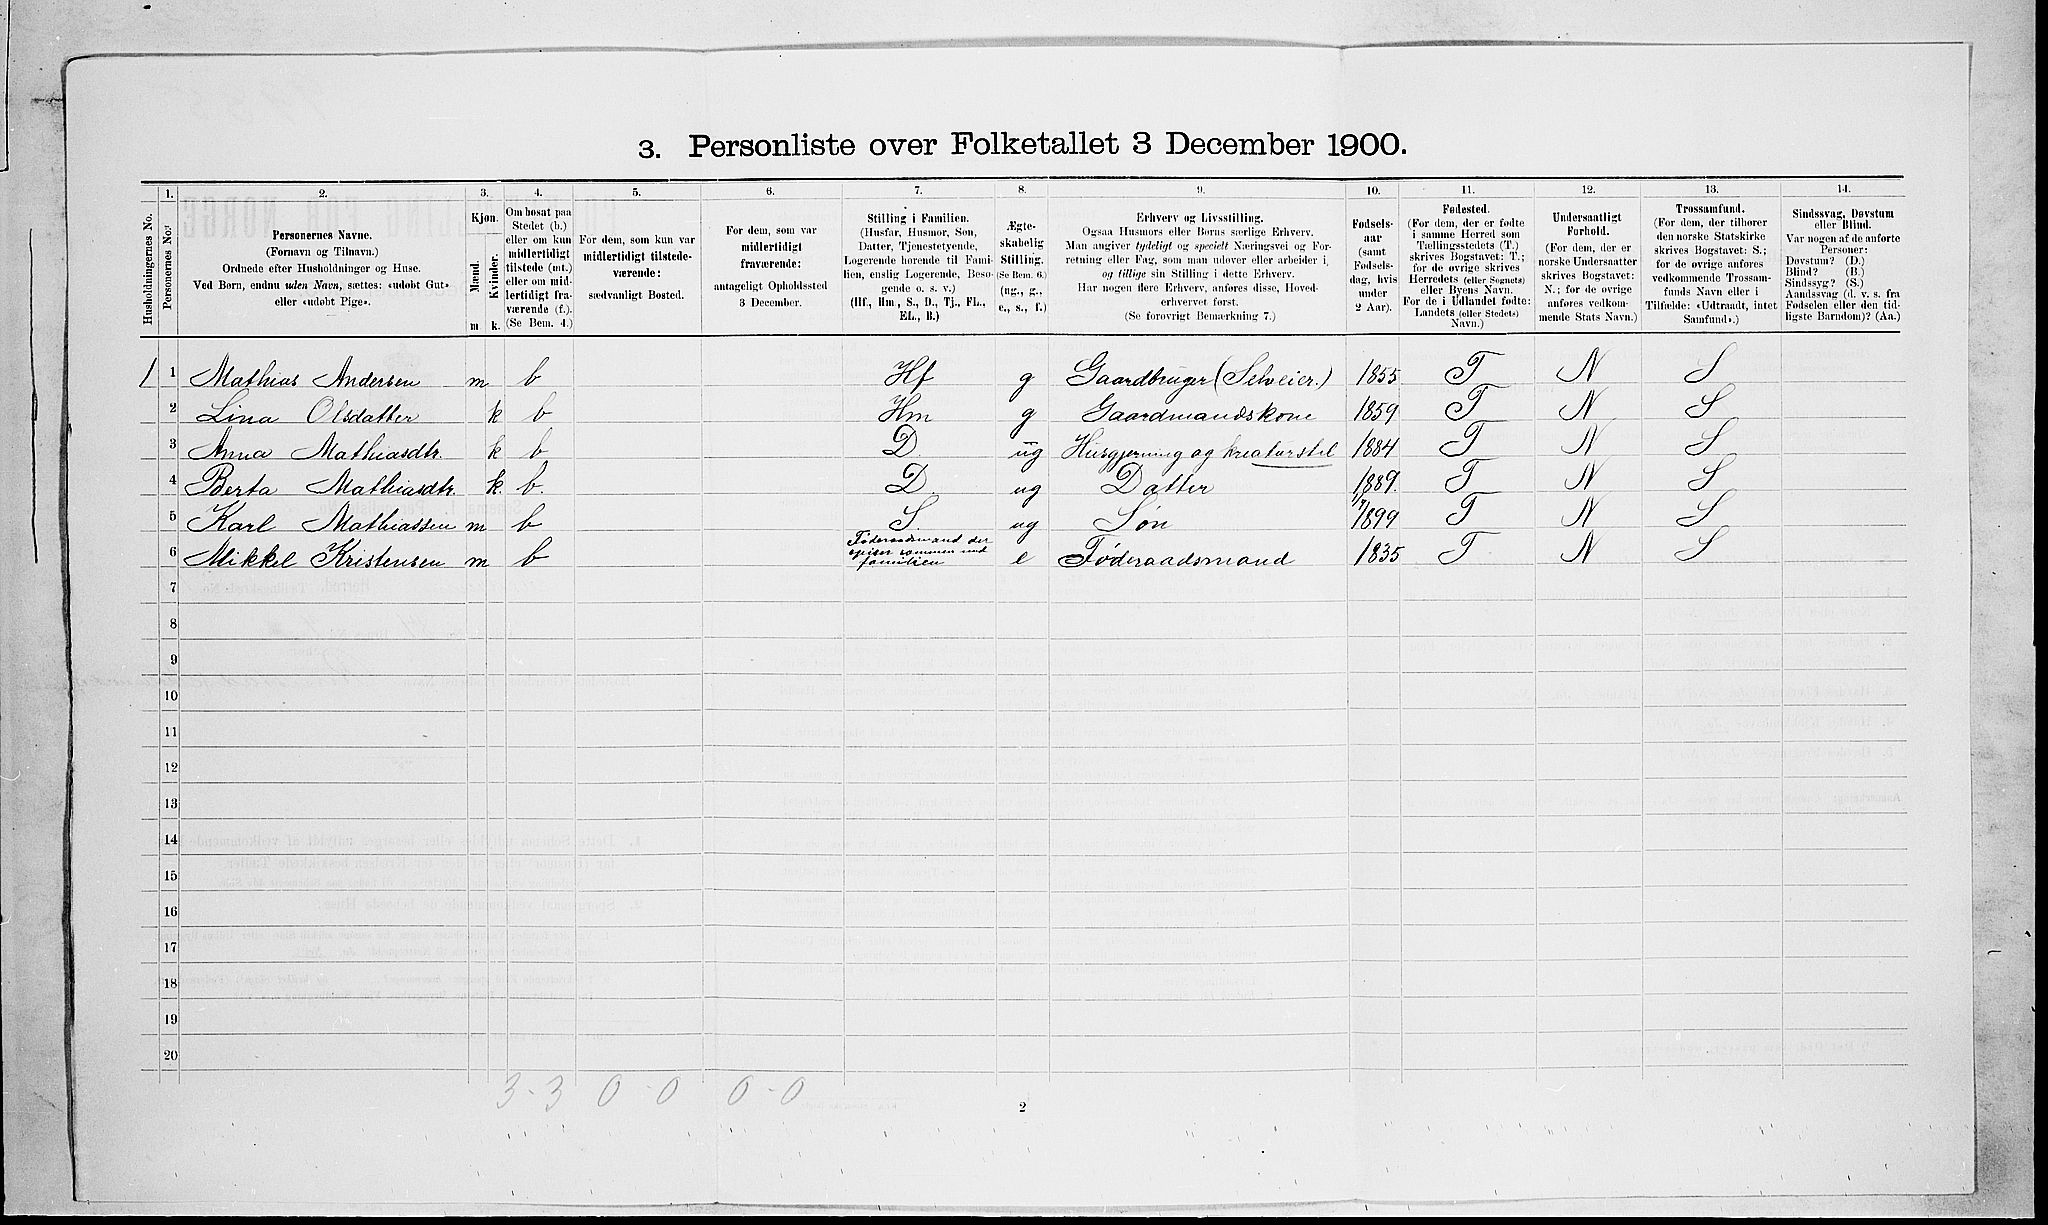 3. Personliste over Folketallet 3 December 1900.
1. 2. 3. 4. 5. 6. 7. 8. 9. 10. 11. 12. 13. 14.
Husholdningernes No.
Personernes No.
Personernes Navne.
(Fornavn og Tilnavn.)
Ordnede efter Husholdninger og Huse.
Ved Børn, endnu uden Navn, sættes: «udøbt Gut»
eller «udøbt Pige».
Kjøn.
Mænd.
Kvinder.
m k.
Om bosat paa
Stedet (b.)
eller om kun
midlertidigt
tilstede (mt.)
eller om mid-
lertidigt fra-
værende (f.).
(Se Bem. 4.)
For dem, som kun var
midlertidigt tilstede-
værende:
sædvanligt Bosted.
For dem, som var
midlertidigt
fraværende:
antageligt Opholdssted
3 December.
Stilling i Familien.
(Husfar, Husmor, Søn,
Datter, Tjenestetyende,
Logerende hørende til Fami-
lien, enslig Logerende, Besø-
gende o. s. v.)
(Hf., Hm., S., D., Tj., FL.,
EL., B.)
Ægte-
skabelig
Stilling.
(Se Bem. 6.)
(ug., g.,
e., s., f.)
Erhverv og Livsstilling.
Ogsaa Husmors eller Børns særlige Erhverv.
Man angiver tydeligt og specielt Næringsvei og For-
retning eller Fag, som man udøver eller arbeider i,
og tillige sin Stilling i dette Erhverv.
Har nogen flere Erhverv, anføres disse, Hoved-
erhvervet først.
(Se forøvrigt Bemærkning 7.)
Fødsels-
aar
(samt
Fødsels-
dag, hvis
under
2 Aar).
Fødested.
(For dem, der er fødte
i samme Herred som
Tællingsstedets (T.)
skrives Bogstavet: T.;
for de øvrige skrives
Herredets (eller Sognets)
eller Byens Navn.
For de i Udlandet fødte:
Landets (eller Stedets)
Navn.)
Undersaatligt
Forhold.
(For dem, der er
norske Undersaatter
skrives Bogstavet:
N.; for de øvrige
anføres vedkom-
mende Stats Navn.)
Trossamfund.
(For dem, der tilhører
den norske Statskirke
skrives Bogstavet: S.;
for de øvrige anføres
vedkommende Trossam-
funds Navn eller i
Tilfælde: «Udtraadt, intet
Samfund».)
Sindssvag, Døvstum
eller Blind.
Var nogen af de anførte
Personer:
Døvstum? (D.)
Blind? (B.)
Sindssyg? (S.)
Aandssvag (d. v. s. fra
Fødselen eller den tid-
ligste Barndom)? (Aa.)
1 1 Mathias Andersen m b Hf g Gaardbruger (Selveier.) 1855 T N S
2 Lina Olsdatter k b Hm g Gaardmandskone 1859 T N S
3 Anna Mathiasdtr. k b D. ug Husgjerning og kreaturstel 1884 T N S
4 Berta Mathiasdtr. k. b. D. ug Datter 1889. T N S
5 Karl Mathiassen m b S. ug Søn 1899 T N S
6 Mikkel Kristensen m b Føderaadsmand der
spiser sammen med
familien e Føderaadsmand 1835 T N S
7
8
9
10
11
12
13
14
15
16
17
18
19
20
3-3 0-0 0-0
2